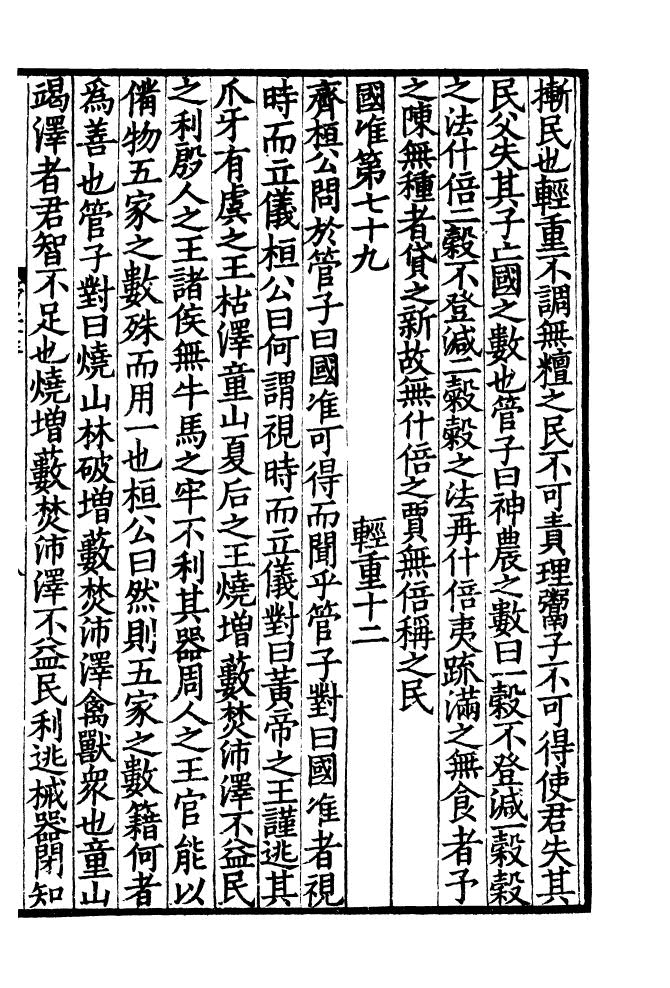 摲民也輕重不調無䊤之民不可責理鬻子不可得使君失其
民父失其子亡國之數也管子曰神農之數曰一穀不登減一穀穀
之法什倍二穀不登減二穀穀之法再什倍夷䟽滿之無食者予
之陳無種者貸之新故無什倍之賈無倍稱之民
國准第七十九　輕重十二
齊桓公問於管子曰國准可得而聞乎管子對曰國准者視
時而立儀桓公曰何謂視時而立儀對曰黃帝之王謹逃其
爪牙有虞之王枯澤童山夏后之王燒增藪焚沛澤不益民
之利殷人之王諸侯無牛馬之牢不利其器周人之王官能以
俻物五家之數殊而用一也桓公曰然則五家之數籍何者
爲善也管子對曰燒山林破增藪焚沛澤禽獸衆也童山
竭澤者君智不足也燒增藪焚沛澤不益民利逃械器閉知